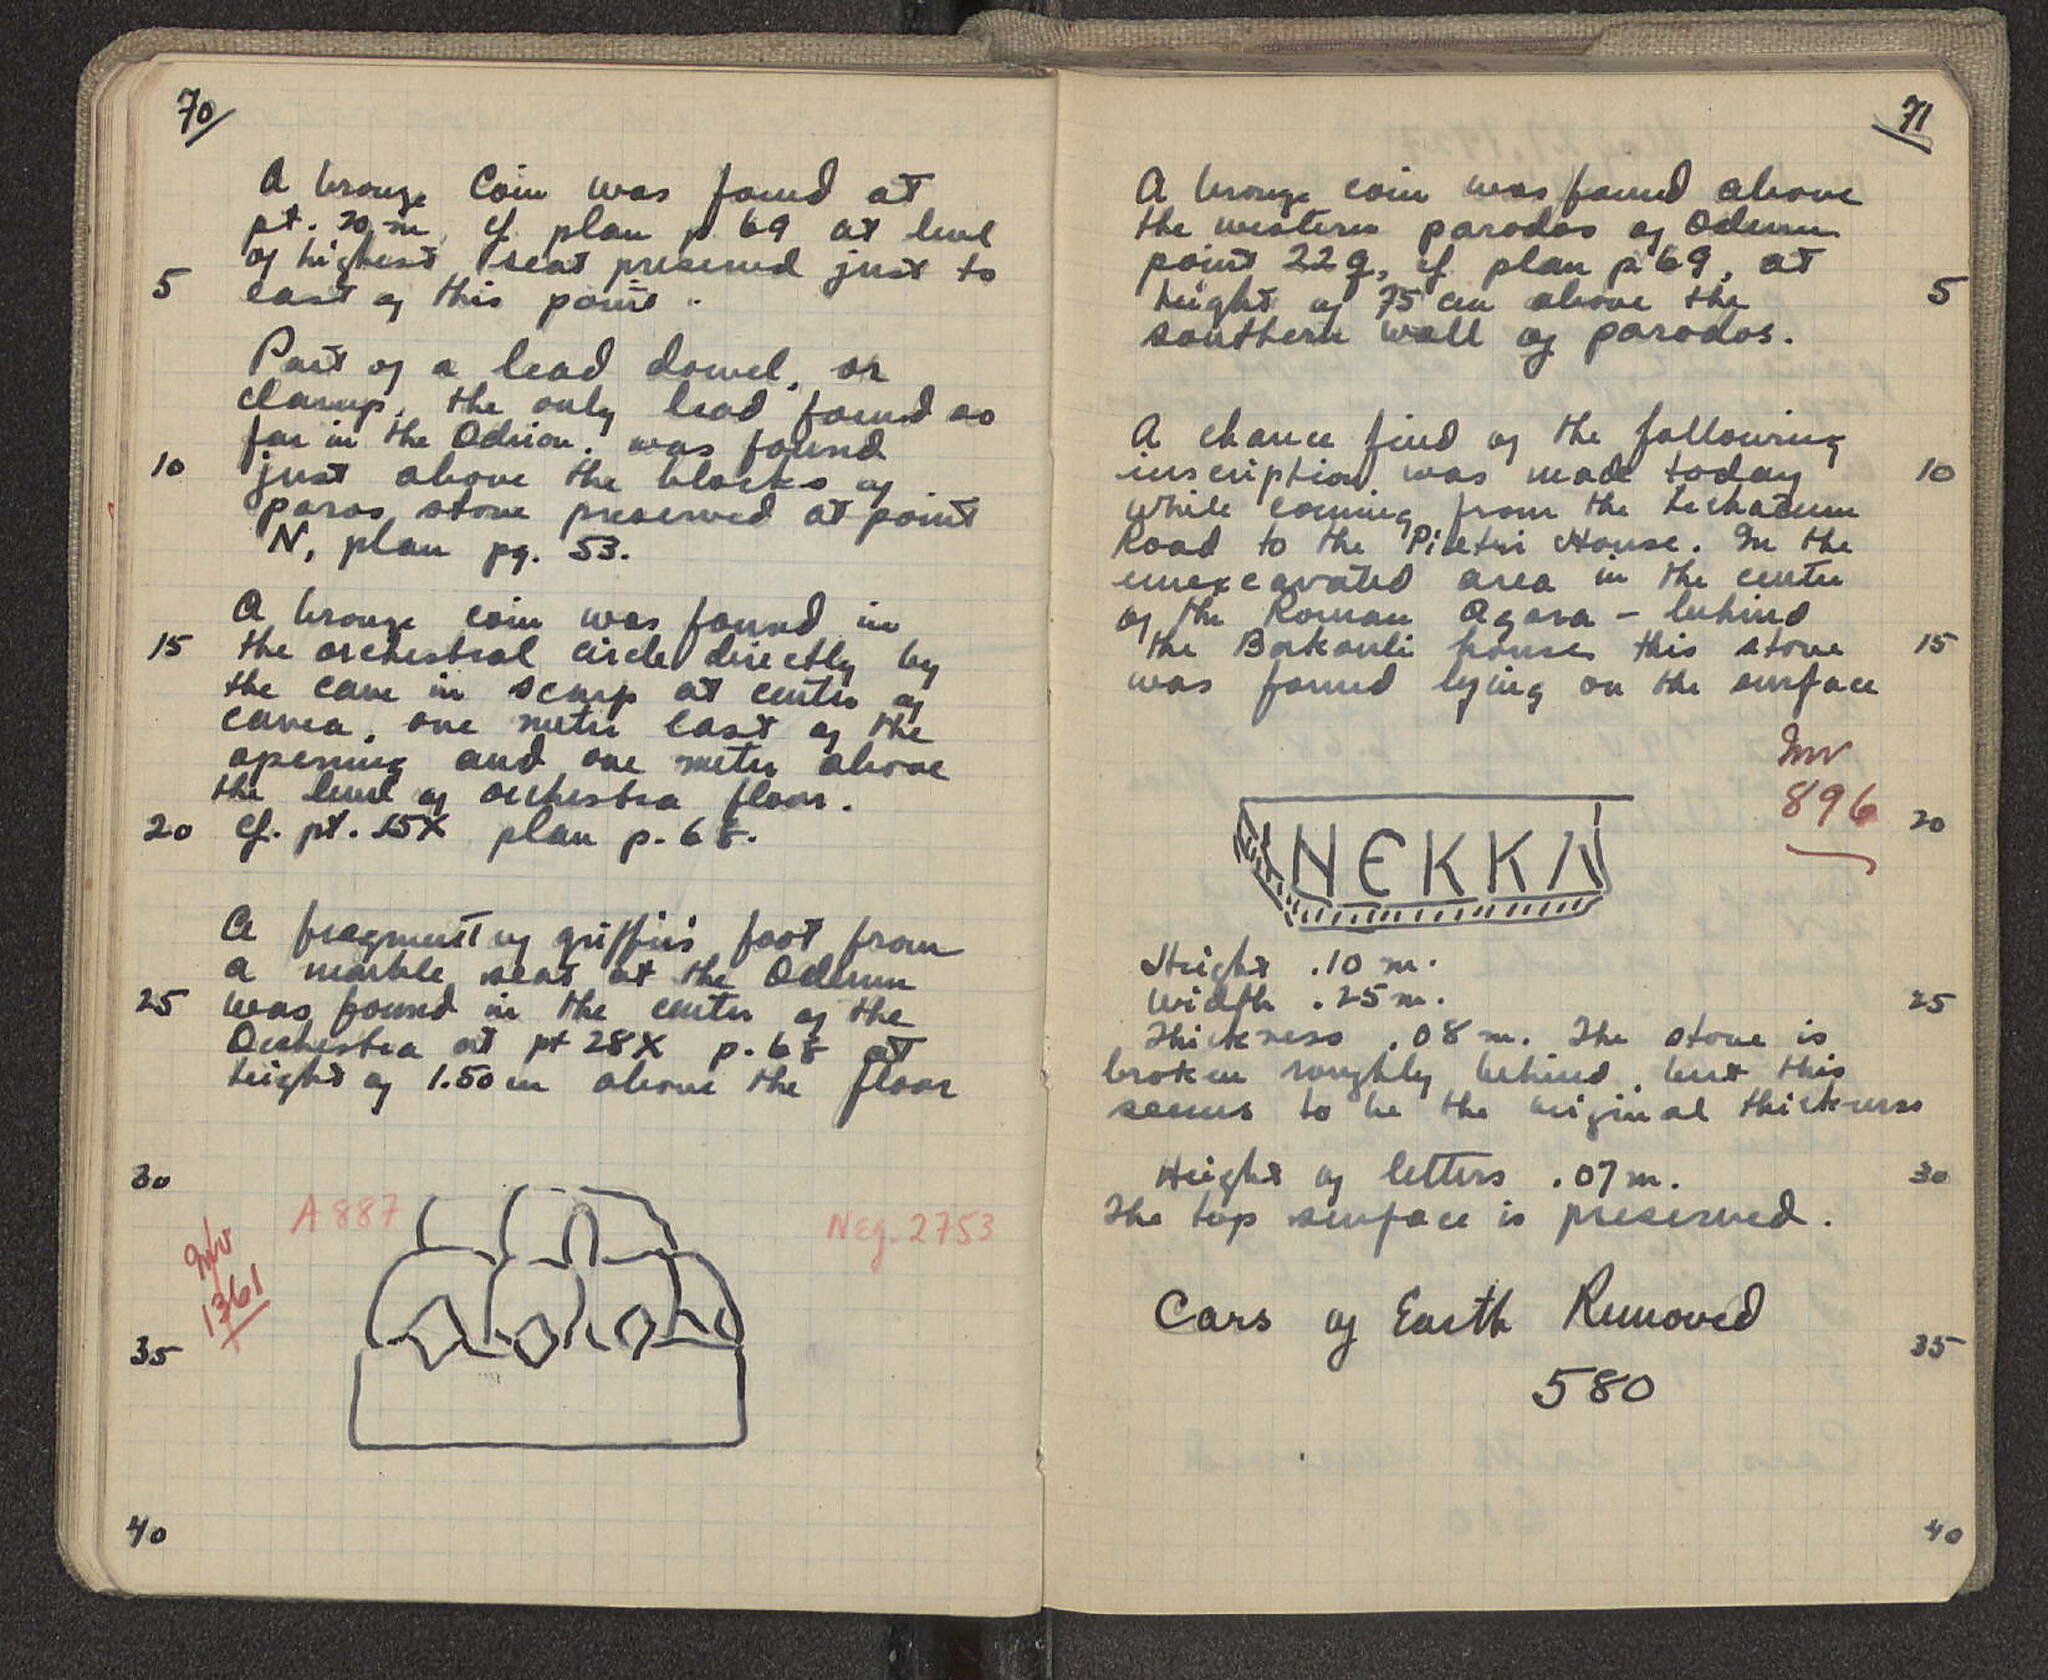 70
A bronze Coin was found at
pt. 20 m, cf plan p. 69 at level
of highest seat preserved just to
5 east of this point.
Part of a lead dowel, or
clamp, the only lead found so
far in the Odeion, was found
10 just above the blocks of
poros stone preserved at point
N, plan pg. 53.
A bronze coin was found in
15 the orchestral circle directly by
the cave in scarp at center of
cavea, one meter east of the
opening and one meter above
the level of orchestra floor.
20 cf. pt. 15X plan p. 68.
A fragment of griffin's foot from
a marble seat at the Odeum
25 was found in the center of the
Orchestra at pt 28X p. 68 at
height of 1.50 m above the floor
30
A 887
Neg. 2753
Inv
1361
35
40
71
A bronze coin was found above
the western parodos of Odeum
point 22q, cf plan p 69, at
height of 75 cm above the 5
southern wall of parodos.
A chance find of the following
inscription was made today 10
while coming from the Lechaeum
Road to the Pietri House. In the
unexcavated area in the center
of the Roman Agora - behind
the Bakouli house this stone 15
was found lying on the surface
Inv
896
20
ΝЄΚΚΛ
Height .10 m.
Width .25 m. 25
Thickness .08 m. The stone is
broken roughly behind, but this
seems to be the original thickness
Height of letters .07 m. 30
The top surface is preserved.
Cars of Earth Removed
35
580
40